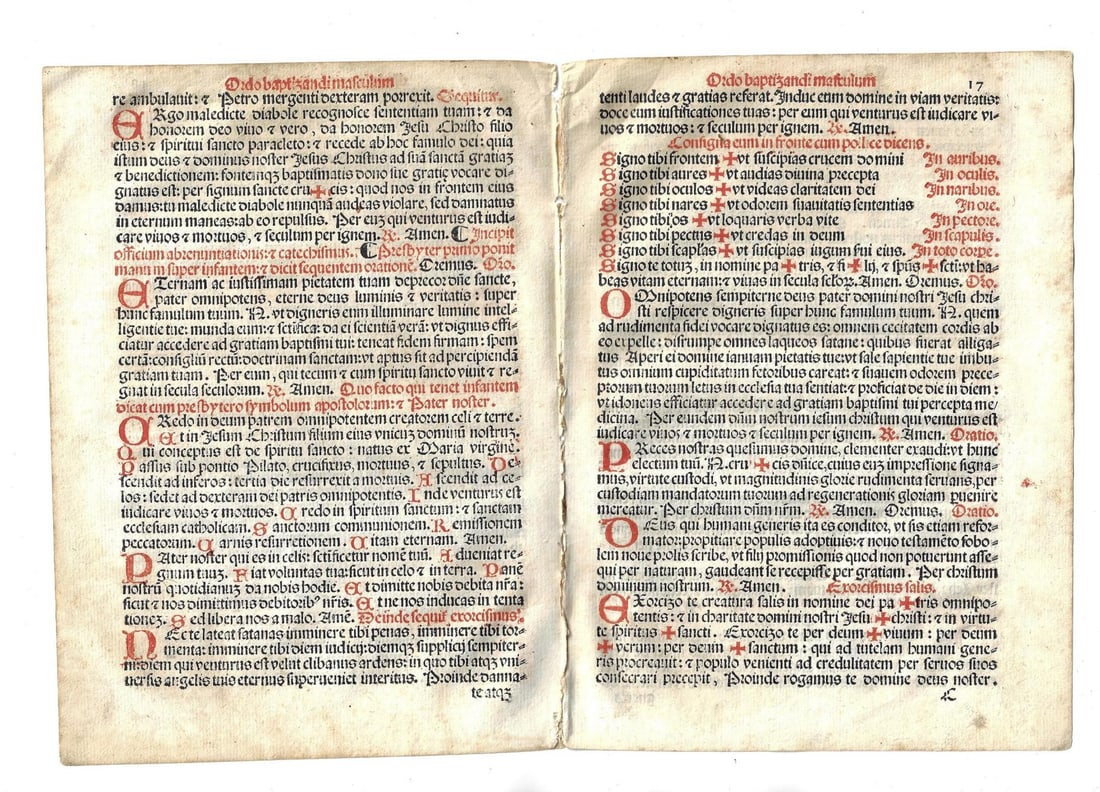 Ordo baptizandi masculum
re ambulavit: ⁊ Petro mergenti dexteram porrexit. Sequitur.
ERgo maledicte diabole recognosce sententiam tuam: ⁊ da
honorem deo vivo ⁊ vero, da honorem Jesu Christo filio
eius: ⁊ spiritui sancto paracleto: ⁊ recede ab hoc famulo dei: quia
istum deus ⁊ dominus noster Jesus Christus ad suā sanctā gratiā
⁊ benedictionem: fontemqꝫ baptismatis dono sue gratie vocare di-
gnatus est: per signum sancte cru ✠ cis: quod nos in frontem eius
damus: tu maledicte diabole nunquā audeas violare, sed damnatus
in eternum maneas: ab eo repulsus. Per euꝫ qui venturus est iudi-
care vivos ⁊ mortuos, ⁊ seculum per ignem. ℟. Amen. ¶ Incipit
officium abrenuntiationis: ⁊ catechismus. ¶ Presbyter primo ponit
manum super infantem: ⁊ dicit sequentem orationē. Oremus. Oro.
ETernam ac iustissimam pietatem tuam deprecor dñe sancte,
pater omnipotens, eterne deus luminis ⁊ veritatis: super
hunc famulum tuum. N. vt digneris eum illuminare lumine intel-
ligentie tue: munda eum: ⁊ sctifica: da ei scientiā verā: vt dignus effi-
ciatur accedere ad gratiam baptismi tui: teneat fidem firmam: spem
certā: consigliū rectū: doctrinam sanctam: vt aptus sit ad percipiendā
gratiam tuam. Per eum, qui tecum ⁊ cum spiritu sancto vivit ⁊ re-
gnat in secula seculorum. ℟. Amen. Quo facto qui tenet infantem
dicat cum presbytero symbolum apostolorum: ⁊ Pater noster.
CRedo in deum patrem omnipotentem creatorem celi ⁊ terre.
Et in Jesum Christum filium eius vnicuꝫ dominū nostruꝫ.
Qui conceptus est de spiritu sancto: natus ex Maria virgine.
Passus sub pontio Pilato, crucifixus, mortuus, ⁊ sepultus. De-
scendit ad inferos: tertia die resurrexit a mortuis. Ascendit ad ce-
los: sedet ad dexteram dei patris omnipotentis. Inde venturus est
iudicare vivos ⁊ mortuos. Credo in spiritum sanctum: ⁊ sanctam
ecclesiam catholicam. Sanctorum communionem. Remissionem
peccatorum. Carnis resurrectionem. Vitam eternam. Amen.
PAter noster qui es in celis: sctificetur nomē tuū. Adueniat re-
gnum tuuꝫ. Fiat voluntas tua: sicut in celo ⁊ in terra. Panē
nostrū quotidianuꝫ da nobis hodie. Et dimitte nobis debita nr̃a:
sicut ⁊ nos dimittimus debitoribꝰ nr̃is. Et ne nos inducas in tenta
tionez. Sed libera nos a malo. Amē. Deinde sequit exorcismus.
NEc te lateat satanas imminere tibi penas, imminere tibi tor-
menta: imminere tibi diem iudicij: diemqꝫ supplicij sempiter-
ni: diem qui venturus est velut clibanus ardens: in quo tibi atqꝫ vni-
versis angelis tuis eternus superueniet interitus. Proinde damna-
te atqꝫ
Ordo baptizandi masculum
17
tenti laudes ⁊ gratias referat. Indue eum domine in viam veritatis:
doce eum iustificationes tuas: per eum qui venturus est iudicare vi-
uos ⁊ mortuos: ⁊ seculum per ignem. ℟. Amen.
Consigna eum in fronte cum pollice dicens.
Signo tibi frontem ✠ vt suscipias crucem domini In auribus.
Signo tibi aures ✠ vt audias divina precepta In oculis.
Signo tibi oculos ✠ vt videas claritatem dei In naribus.
Signo tibi nares ✠ vt odorem suavitatis sentias In ore.
Signo tibi os ✠ vt loquaris verba vite In pectore.
Signo tibi pectus ✠ vt credas in deum In scapulis.
Signo tibi scapłas ✠ vt suscipias iugum sui eius. In toto corpe.
Signo te totuꝫ, in nomine pa ✠ tris, ⁊ fi ✠ lij, ⁊ spūs ✠ scti: vt ha-
beas vitam eternam: ⁊ vivas in secula seloꝝ. Amen. Oremus. Oro.
OMnipotens sempiterne deus pater domini nostri Jesu chri-
sti respicere digneris super hunc famulum tuum. N. quem
ad rudimenta fidei vocare dignatus es: omnem cecitatem cordis ab
eo expelle: disrumpe omnes laqueos satane: quibus fuerat alliga-
tus Aperi ei domine ianuam pietatis tue: vt sale sapientie tue imbu-
tus omnium cupiditatum fetoribus careat: ⁊ suavem odorem prece-
ptorum tuorum letus in ecclesia tua sentiat: ⁊ proficiat de die in diem:
vt idoneus efficiatur accedere ad gratiam baptismi tui percepta me-
dicina. Per eundem dñm nostrum iesum christum qui venturus est
iudicare viuos ⁊ mortuos ⁊ seculum per ignem. ℟. Amen. Oratio.
PReces nostras quesumus domine, clementer exaudi: vt hunc
electum tuū. N. cru ✠ cis dñice, cuius euꝫ impressione signa-
mus, virtute custodi, vt magnitudinis glorie rudimenta servans, per
custodiam mandatorum tuorum ad regenerationis gloriam puenire
mereatur. Per christum dñm nr̃m. ℟. Amen. Oremus. Oratio.
DEus qui humani generis ita es conditor, vt sis etiam refor-
mator: propitiare populis adoptiuis: ⁊ novo testamēto sobo-
lem noue prolis scribe, vt filij promissionis quod non potuerunt asse-
qui per naturam, gaudeant se recepisse per gratiam. Per christum
dominum nostrum. ℟. Amen. Exorcismus salis.
EXorcizo te creatura salis in nomine dei pa ✠ tris omnipo-
tentis: ⁊ in charitate domini nostri Jesu ✠ christi: ⁊ in virtu-
te spiritus ✠ sancti. Exorcizo te per deum ✠ viuum: per deum
✠ verum: per deum ✠ sanctum: qui ad tutelam humani gene-
ris procreauit: ⁊ populo venienti ad credulitatem per seruos suos
consecrari precepit, Proinde rogamus te domine deus noster.
C